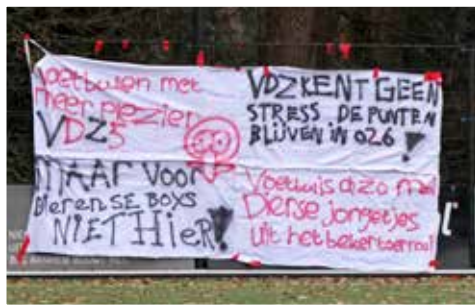 Voetballen met
meer plezier
VDZ5
MAAR VOOR
Dierense BOYS
NIET HIER!
VDZ KENT GEEN
STRESS DE PUNTEN
BLIJVEN IN 026!
Voetbal is zo mooi
Dierse jongetjes
uit het bekertoernooi